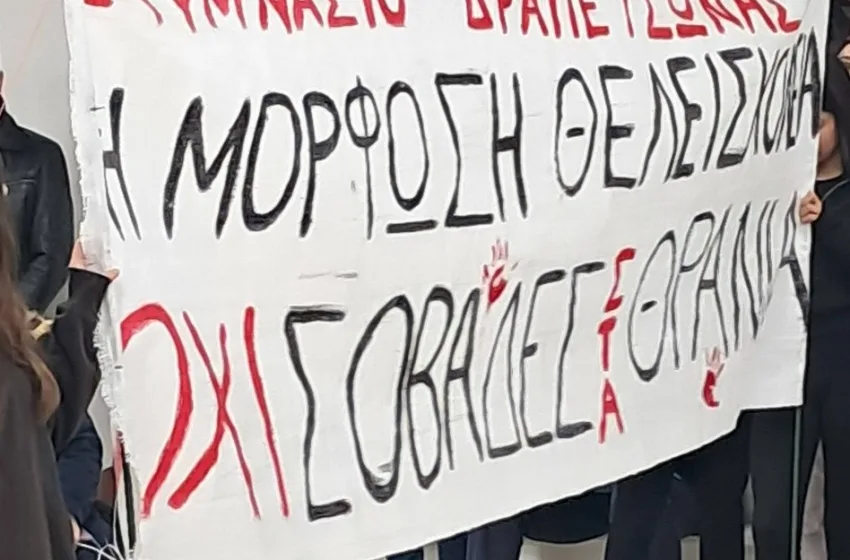 ΓΥΜΝΑΣΙΟ ΔΡΑΠΕΤΣΩΝΑΣ
Η ΜΟΡΦΩΣΗ ΘΕΛΕΙ ΣΧΟΛΕΙΑ
ΟΧΙ ΣΟΒΑΔΕΣ ΣΤΑ ΘΡΑΝΙΑ